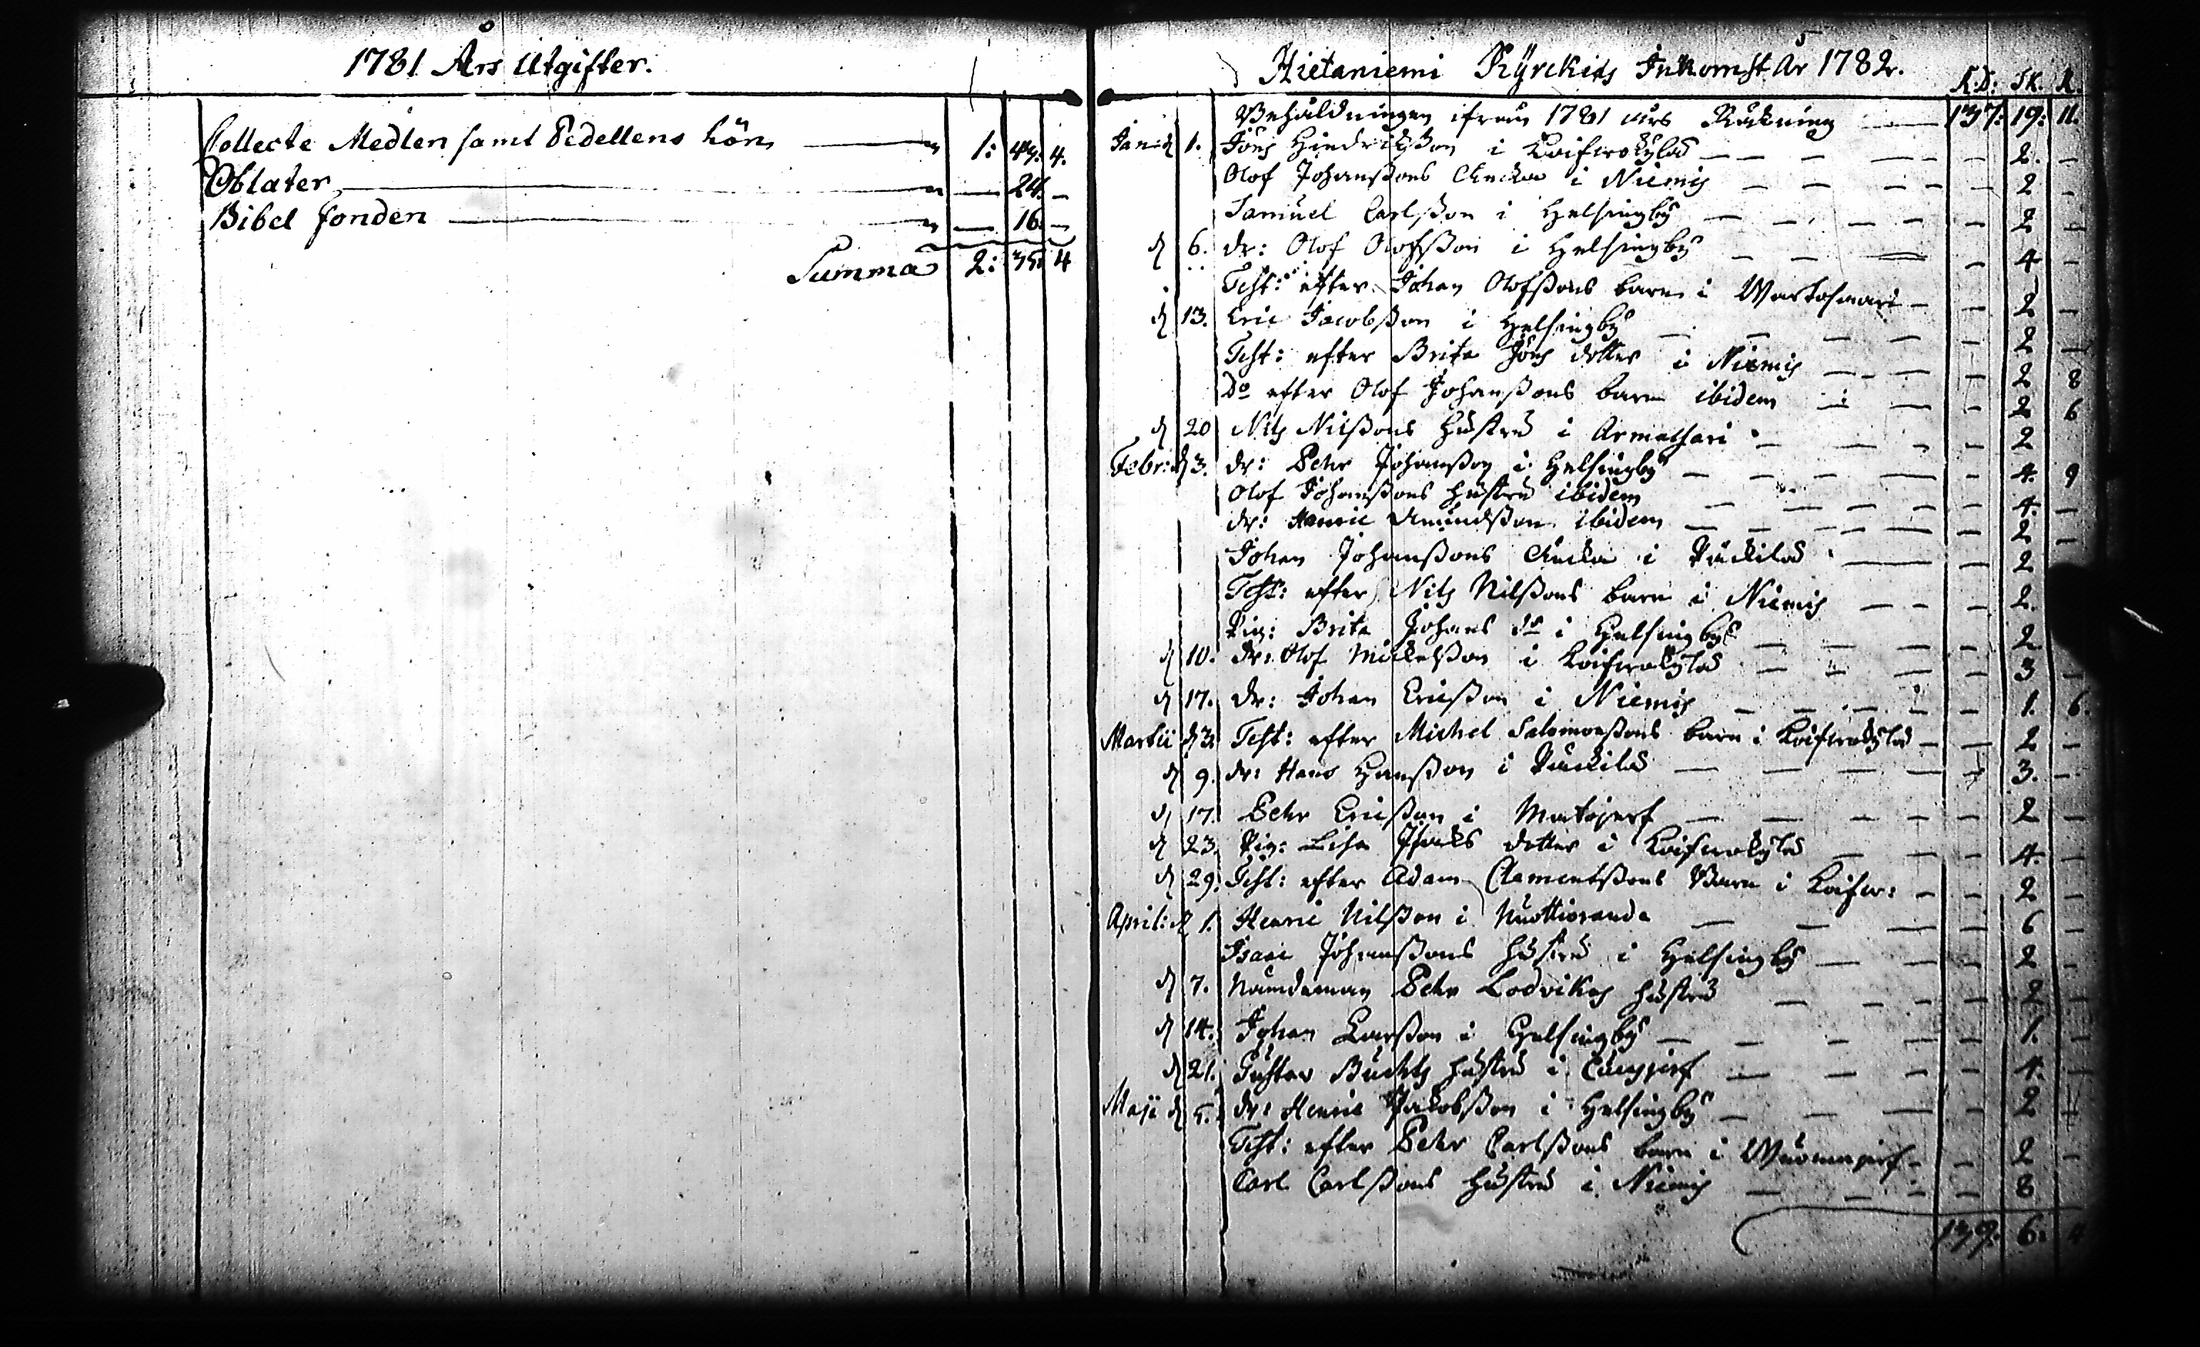 1781 Års Utgifter.
Collecte Medlen samt Pedellens Lön 1: 43: 4.
Oblater — 24. —
Bibel fonden — 16. —
Summa 2: 35: 4
Hietaniemi Kyrckias Inkomst År 1782.
R:D: Sk. R.
Behåldningen ifrån 1781 års Räkning 137: 19: 11.
Jan: d 1. Jöns Hindricksson i Koifwokylä 2. —
Olof Johanssons Encka i Niemis 2 —
Samuel Carlsson i Helsingby 2 —
d 6. dr: Olof Olofsson i Helsingby 4 —
Test: efter Johan Olofssons barn i Wartosaari 2 —
d 13. Eric Jacobsson i Helsingby 2 —
Test: efter Brita Jöns dotter i Niemis 2 8
Do efter Olof Johanssons barn ibidem 2 6
d 20 Nils Nilssons hustru i Armassari 2
Febr: d 3. dr: Pehr Johansson i Helsingby 4. 9
Olof Johanssons hustru ibidem 4. —
dr: Henric Amundsson ibidem 2 —
Johan Johanssons Encka i Päckilä 2
Test: efter Nils Nilssons barn i Niemis 2.
Pig: Brita Johans dr i Helsingby 2
d 10. dr: Olof Mickelsson i Koifwokylä 3 —
d 17. dr: Johan Ericsson i Niemis 1. 6.
Martii d 3. Test: efter Michel Salomonssons barn i Koifwokylä 2 —
d 9. dr: Hans Hansson i Päckilä 3. —
d 17. Pehr Ericsson i Matojerf 2 —
d 23. Pig: Lisa Isacks dotter i Koifwokylä 4. —
d 29. Test: efter Adam Clementssons Barn i Koifw: 2 —
April: d 1. Henric Nilsson i Nuottioranda 6 —
Isaac Johanssons hustru i Helsingby 2 —
d 7. Nämdeman Pehr Lodvikes hustru 2 —
d 14. Johan Larsson i Helsingby 1. —
d 21. Gustav Buchts hustru i 4. —
Maji d 5. dr: Henric Jacobsson i Helsingby 2 —
Test: efter Pehr Carlssons barn i Wuomajerf 2 —
Carl Carlssons hustru i Niemis 8
139: 6: 4